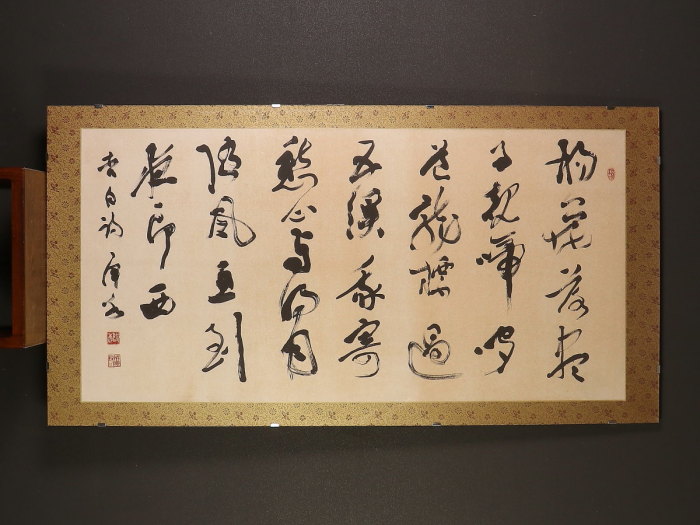 楊花落盡
子規啼聞
道龍標過
五溪我寄
愁心与明月
隨風直到
夜郎西
李白詩